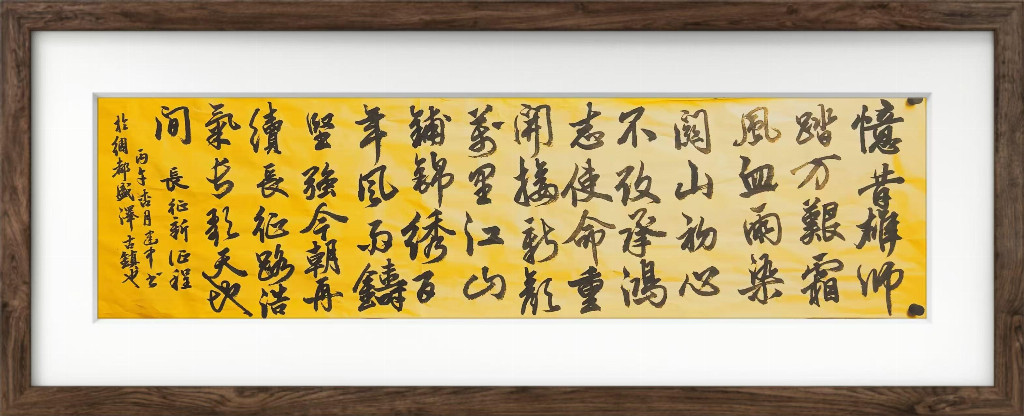 憶昔雄师
踏万艱霜
風血雨染
關山初心
不改承鴻
志使命重
開接新顏
萬里江山
鋪錦绣百
年风雨鑄
堅強今朝再
續長征路浩
氣长歌天地
间 長征新征程
丙午杏月建中书
於綢都盛澤古鎮也